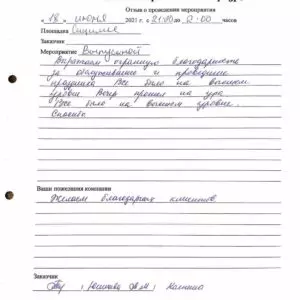 Отзыв о проведении мероприятия
« 18 » июня 2021 г. с 21:00 до 2:00 часов
Площадка
Заказчик
Мероприятие Выпускной
Выражаем огромную благодарность
за обслуживание и проведение
праздника Все было на высшем
уровне Вечер прошел на ура
Все было на высшем уровне.
Спасибо
Ваши пожелания компании
Желаем благодарных клиентов.
Заказчик